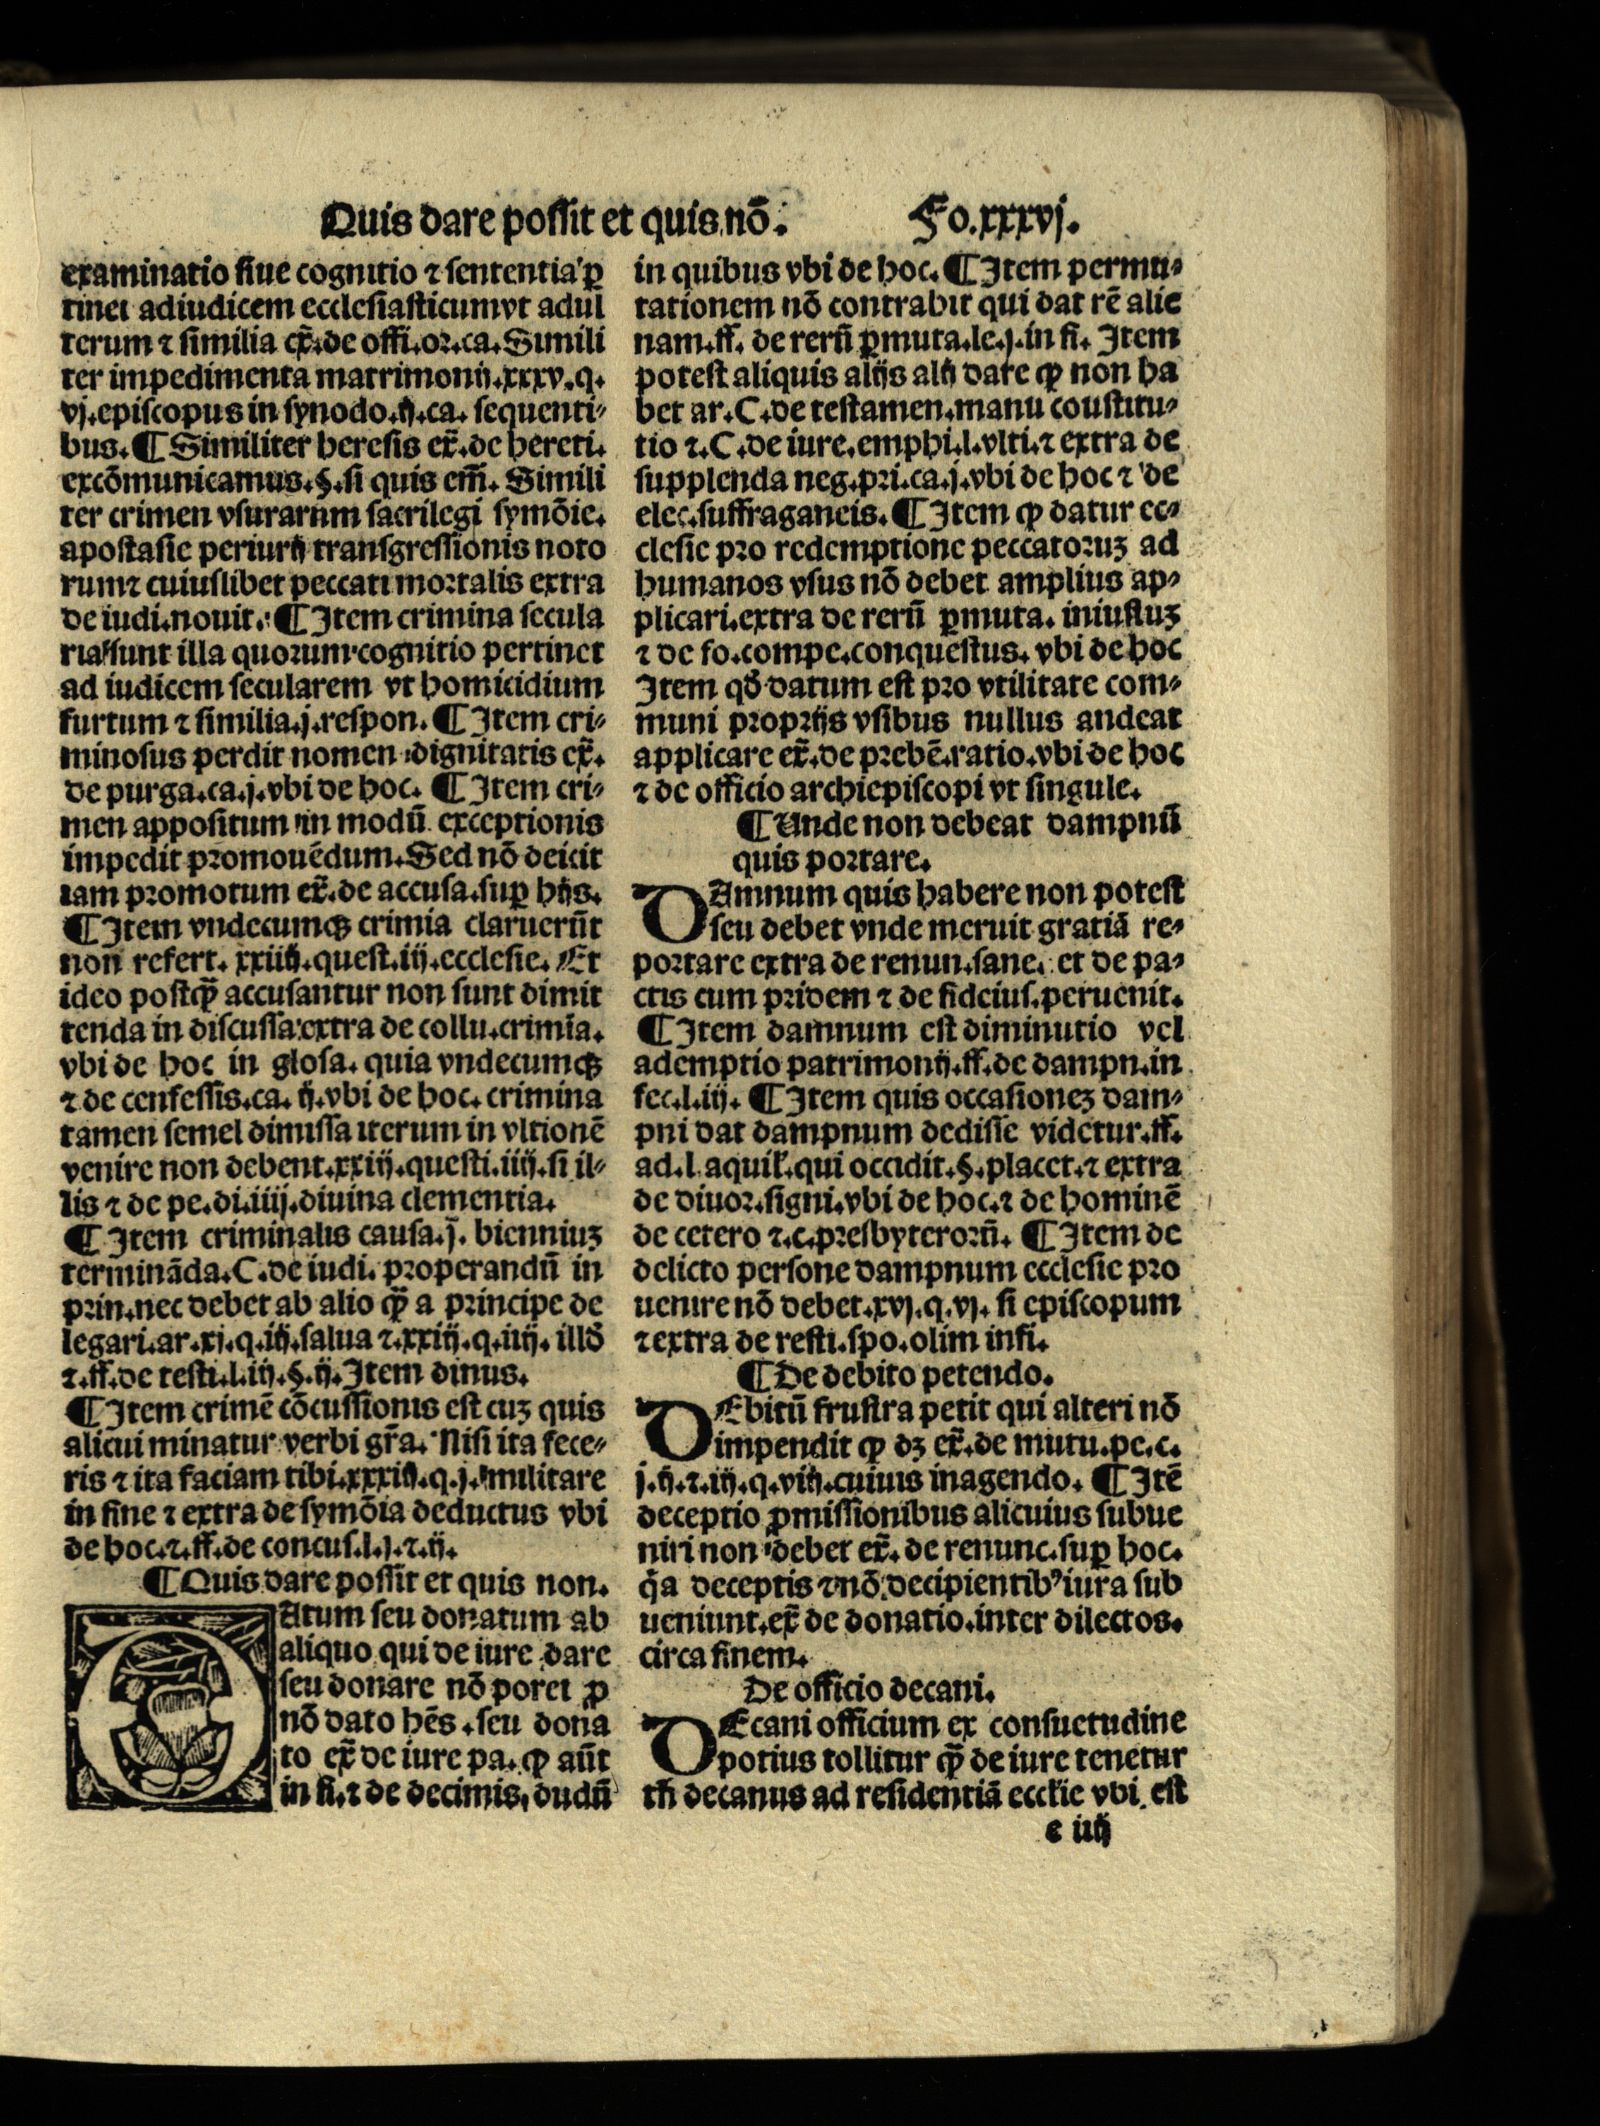 Quis dare possit et quis nō. Fo.xxxvj.
examinatio siue cognitio ⁊ sententia ꝑ
tinet ad iudicem ecclesiasticum vt adul
terum ⁊ similia ex̄.de offi.or.ca. Simili
ter impedimenta matrimonij.xxxv.q.
vj.episcopus in synodo.ij.ca. sequenti⸗
bus. ¶ Similiter heresis ex̄.de hereti.
excōmunicamus.§.si quis em̄. Simili
ter crimen vsurarum sacrilegi symōie.
apostasie periurij transgressionis noto
rum⁊ cuiuslibet peccati mortalis extra
de iudi.nouit. ¶ Item crimina secula
ria sunt illa quorum cognitio pertinet
ad iudicem secularem vt homicidium
furtum ⁊ similia.j.respon. ¶ Item cri⸗
minosus perdit nomen dignitatis ex̄.
de purga.ca.j.vbi de hoc. ¶ Item cri⸗
men appositum in modū exceptionis
impedit promouēdum. Sed nō deicit
iam promotum ex̄.de accusa.suꝑ hijs.
¶ Item vndecumqꝫ crimia claruerūt
non refert. xxiiij.quest.iij.ecclesie. Et
ideo postꝙ̄ accusantur non sunt dimit
tenda in discussa extra de collu.crimīa.
vbi de hoc in glosa. quia vndecumqꝫ
⁊ de confessis.ca. ij.vbi de hoc. crimina
tamen semel dimissa iterum in vltionē
venire non debent.xxiij.questi.iiij.si il⸗
lis ⁊ de pe.di.iiij.diuina clementia.
¶ Item criminalis causa.j. bienniuꝫ
termināda.C.de iudi. properandū in
prin.nec debet ab alio ꝙ̄ a principe de
legari.ar.xj.q.iij.salua ⁊.xxiij.q.iiij. illō
⁊.ff.de testi.l.iij.§.ij. Item diuus.
¶ Item crimē cōcussionis est cuꝫ quis
alicui minatur verbi gr̄a. Nisi ita fece⸗
ris ⁊ ita faciam tibi.xxxiij.q.j. militare
in fine ⁊ extra de symōia deductus vbi
de hoc.⁊.ff.de concus.l.j.⁊.ij.
¶ Quis dare possit et quis non.
Atum seu donatum ab
aliquo qui de iure dare
seu donare nō potet ꝓ
nō dato hēs.seu dona
to ex̄ de iure pa. ꝙ aūt
in fi.⁊ de decimis, dudū
in quibus vbi de hoc. ¶ Item permu⸗
tationem nō contrahit qui dat rē alie
nam.ff. de rerū ꝑmuta.le.j.in fi. Item
potest aliquis alijs alij dare ꝙ non ha
bet ar.C.de testamen.manu coustitu⸗
tio ⁊.C.de iure.emphi.l.vlti.⁊ extra de
supplenda neg.pri.ca.j.vbi de hoc ⁊ de
elec.suffraganeis. ¶ Item ꝙ datur ec⸗
clesie pro redemptione peccatoruꝫ ad
humanos vsus nō debet amplius ap⸗
plicari.extra de rerū ꝑmuta. iniustuꝫ
⁊ de fo.compe.conquestus. vbi de hoc
Item qō datum est pro vtilitate com⸗
muni proprijs vsibus nullus andeat
applicare ex̄.de prebē.ratio.vbi de hoc
⁊ de officio archiepiscopi vt singule.
¶ Unde non debeat dampnū
quis portare.
DAmnum quis habere non potest
seu debet vnde meruit gratiā re⸗
portare extra de renun.sane. et de pa⸗
ctis cum pridem ⁊ de fideius.peruenit.
¶ Item damnum est diminutio vel
ademptio patrimonij.ff.de dampn.in
fec.l.iij. ¶ Item quis occasioneꝫ dam⸗
pni dat dampnum dedisse videtur.ff.
ad.l aquil.qui occidit.§.placet.⁊ extra
de diuor.signi.vbi de hoc.⁊ de hominē
de cetero ⁊.c.presbyterorū. ¶ Item de
delicto persone dampnum ecclesie pro
uenire nō debet.xvj.q.vj. si episcopum
⁊ extra de resti.spo.olim infi.
¶ De debito petendo.
DEbitū frustra petit qui alteri nō
impendit ꝙ dꝫ ex̄.de mutu.pe.c.
j.ij.⁊.iij.q.viij.cuius in agendo. ¶ Itē
deceptio ꝓmissionibus alicuius subue
niri non debet ex̄.de renunc.suꝑ hoc.
q̄a deceptis ⁊ nō decipientibꝰ iura sub
ueniunt.ex̄ de donatio.inter dilectos.
circa finem.
De officio decani.
DEcani officium ex consuetudine
potius tollitur ꝙ̄ de iure tenetur
tn̄ decanus ad residentiā eccl̄ie vbi est
e iiij